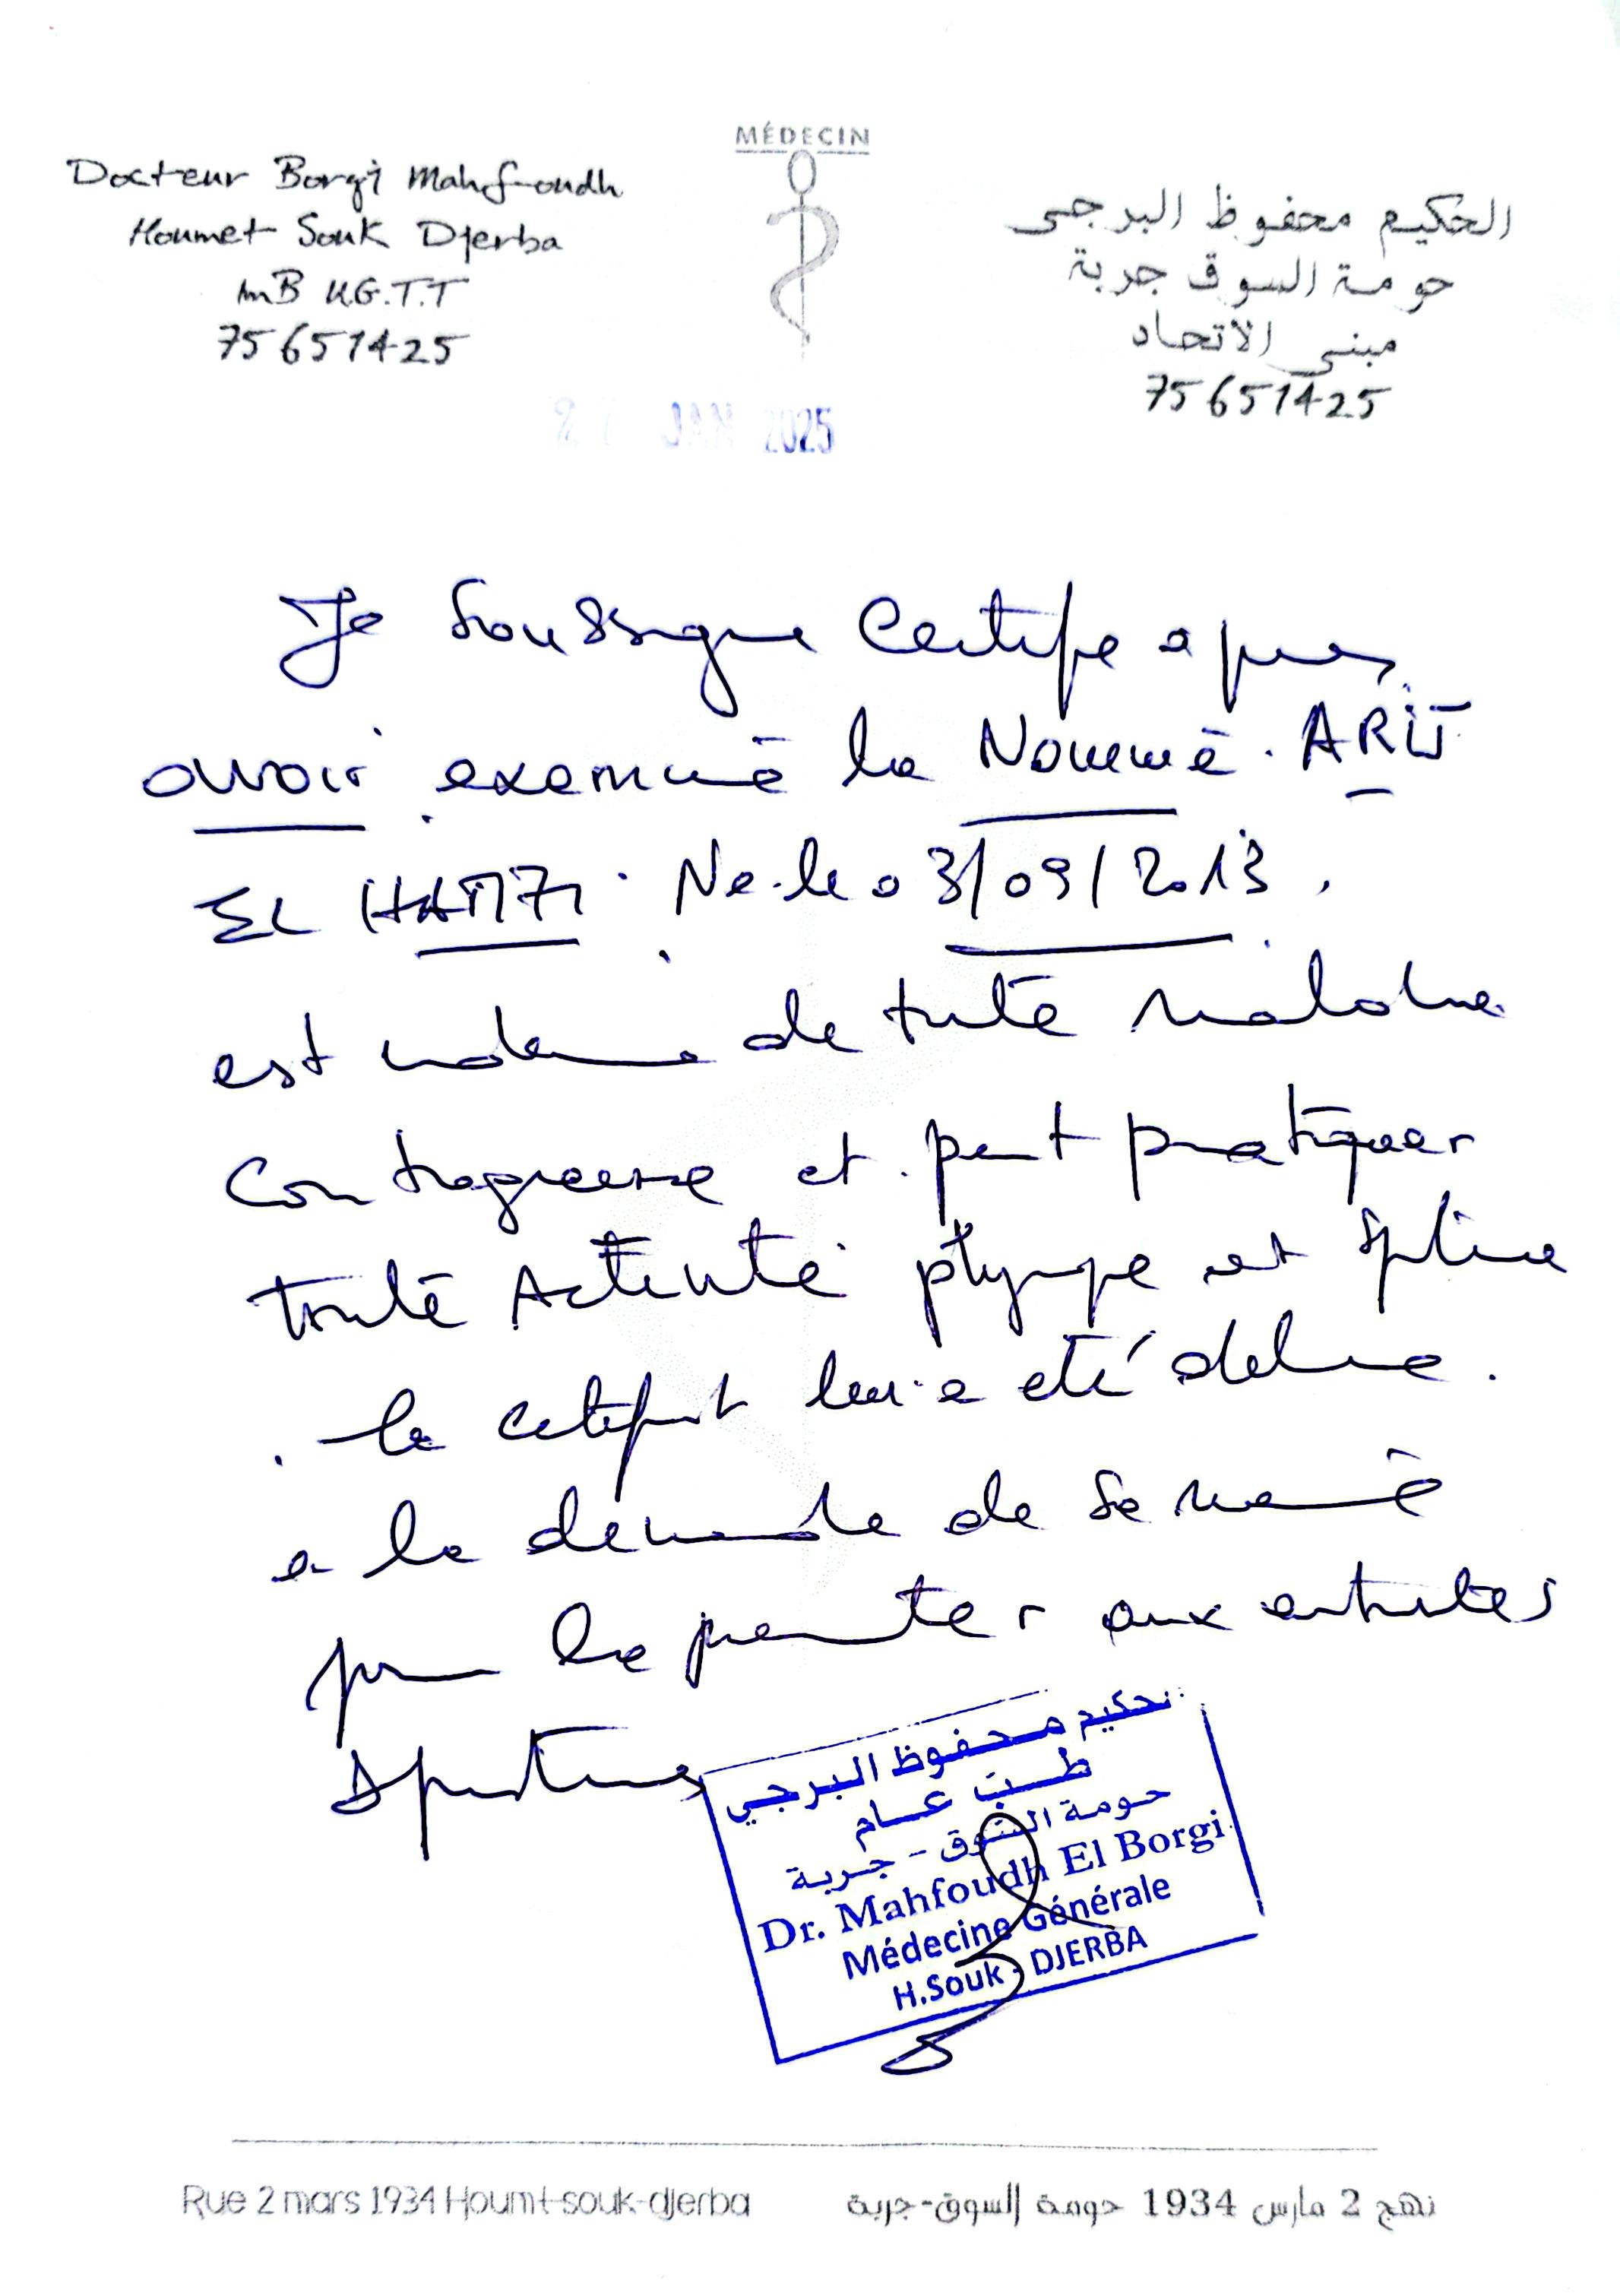 MÉDECIN
Docteur Borgi Mahfoudh
Houmet Souk Djerba
ImB U.G.T.T
75651425
الحكيم محفوظ البرجي
حومة السوق جربة
مبنى الاتحاد
75651425
JAN 2025
Je Soussigne Certifie apres
avoir examiné le Nommé
EL Ne le 03/09/2013
est indemne de toute maladie
contagieuse et peut pratiquer
toute Activité physique et sportive
le certificat lui a été delivre
a la demande de sa
pour le presenter aux activites
sportives
الحكيم محفوظ البرجي
طب عام
حومة السوق - جربة
Dr. Mahfoudh El Borgi
Médecine Générale
H.Souk - DJERBA
Rue 2 mars 1934 Houmt-souk-djerba
نهج 2 مارس 1934 حومة السوق-جربة